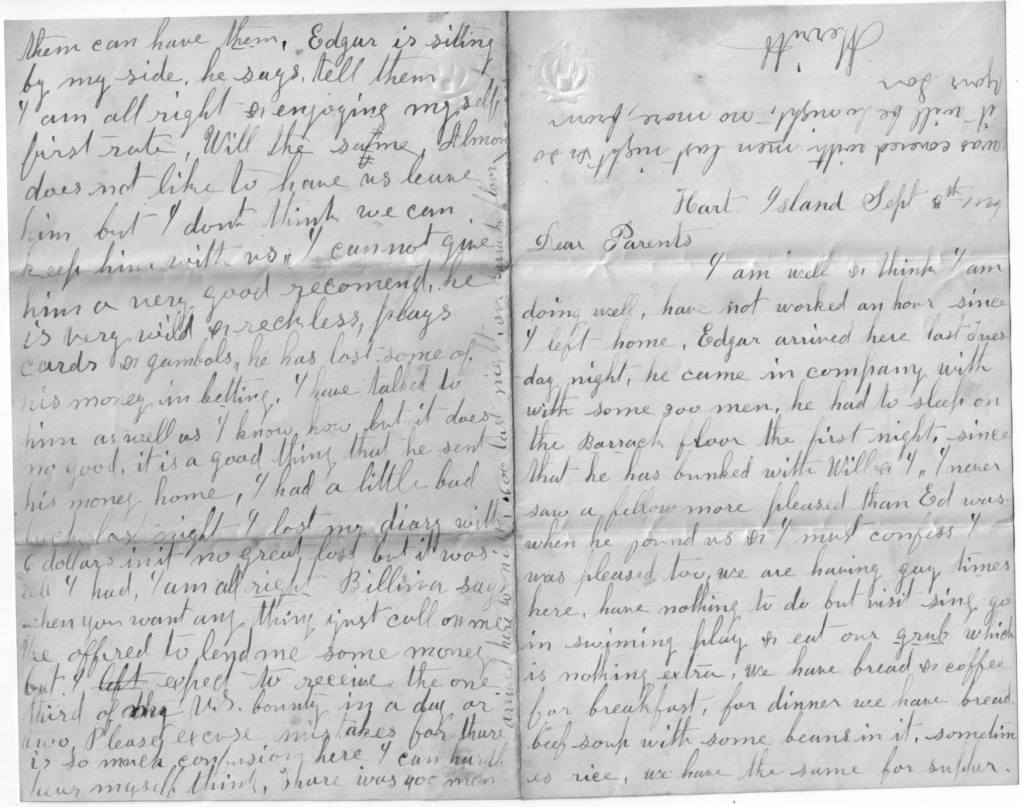 Hart Island Sept 8th
Dear Parents
I am well & think I am
doing well, have not worked an hour since
I left home, Edgar arrived here last Tues
day night, he came in company with
with some 300 men, he had to sleep on
the Barrack floor the first night, since
that he has bunked with Will & I, I never
saw a fellow more pleased than Ed was
when he found us & I must confess I
was pleased too, we are having gay times
here, have nothing to do but visit sing go
in swiming play & eat our grub which
is nothing extra, we have bread & coffee
for breakfast, for dinner we have bread
beef soup with some beans in it, sometim
es rice, we have the same for supper.
them can have them, Edgar is sitting
by my side, he says, tell them
I am all right & enjoying myself
first rate, Will the same, Almon
does not like to have us leave
him but I dont think we can
keep him with us, I cannot give
him a very good recomend, he
is very wild & reckless, plays
cards & gambols, he has lost some of
his money in betting, I have talked to
him as well as I know how but it does
no good, it is a good thing that he sent
his money home, I had a little bad
luck last night I lost my diary with
6 dollars in it no great loss but it was
all I had, I am all right Billina says
when you want any thing just call on me
He offired to lend me some money
but I left expect to receive the one
third of my U.S. bounty in a day or
two, Please excuse mistakes for thare
is so much confusion here I can hardly
hear myself think, thare was 900 men
arrived here to night, 600 last night, our barrack floor
was covered with men last night & so
it will be to night, no more, from
your son
Merritt